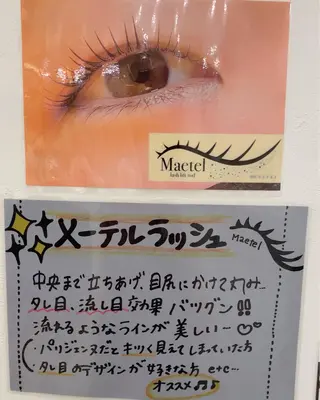 Maetel
lash lift rod
メーテルラッシュ
Maetel
中央まで立ちあげ、目尻にかけて丸みー
タレ目、流し目効果バツグン!!
流れるようなラインが美しいー♡♡
・パリジェンヌだとキツく見えてしまっていた方
・タレ目のデザインが好きな方 etc…
オススメ♬♪